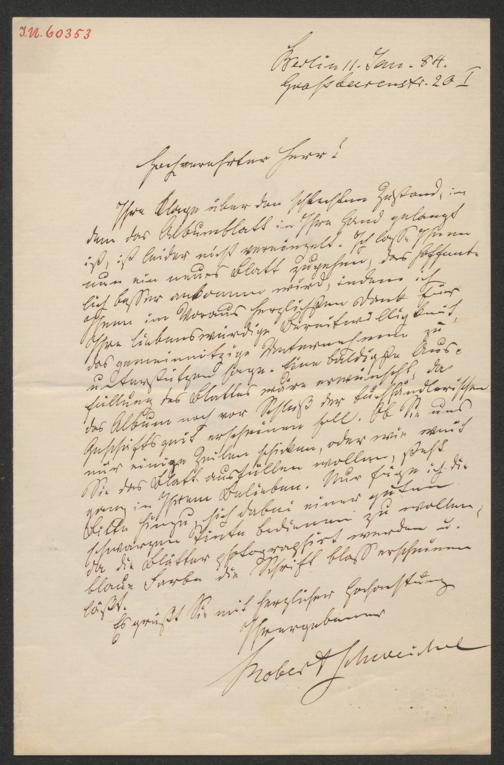 I.N. 60353
Berlin 11. Jan. 84.
Großbeerenstr. 20 I
Hochverehrter Herr!
Ihre Klage über den schlechten Zustand, in
dem das Albumblatt in Ihre Hand gelangt
ist, ist leider nicht vereinzelt. Ich lasse Ihnen
nun ein neues Blatt zugehen, das hoffent-
lich besser ankommen wird, indem ich
Ihnen im Voraus herzlichsten Dank für
Ihre liebenswürdige Bereitwilligkeit,
das gemeinnützige Unternehmen zu
unterstützen sage. Eine baldigste Aus-
füllung des Blattes wäre erwünscht, da
das Album noch vor Schluß der buchhändlerischen
Geschäftszeit erscheinen soll. Ob Sie uns
nur einige Zeilen schicken, oder wie weit
Sie das Blatt ausfüllen wollen, steht
ganz in Ihrem Belieben. Nur füge ich die
Bitte hinzu, sich dabei einer guten
schwarzen Tinte bedienen zu wollen,
da die Blätter photographirt werden u.
blaue Farbe die Schrift blass erscheinen
läßt.
Es grüßt Sie mit herzlicher Hochachtung
Ihr ergebener
Robert Schweichel